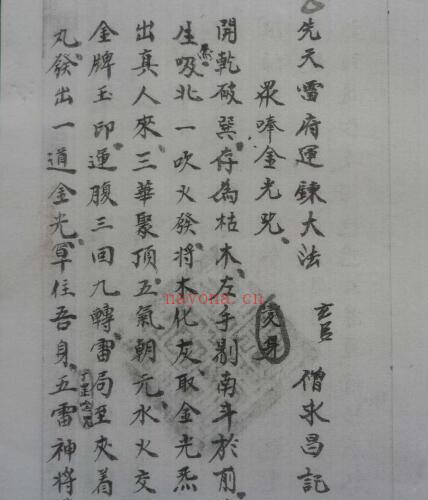 先天雷府運鍊大法 玄臣 僧求昌記
眾唪金光咒
開乾破巽存為枯木左手剔南斗於前
生吸北一吹火發將木化灰取金光炁
出真人來三華聚頂五氣朝元水火交
金牌玉印運腹三回九轉雷局至夾着
丸發出一道金光罩住吾身五雷神將
nayona.cn